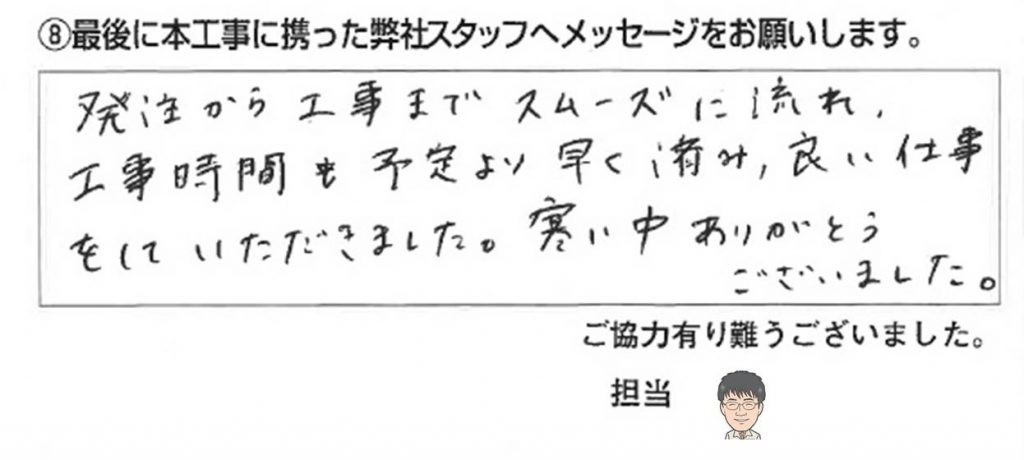 ⑧最後に本工事に携った弊社スタッフへメッセージをお願いします。
発注から工事までスムーズに流れ、
工事時間も予定より早く済み、良い仕事
をしていただきました。寒い中ありがとう
ございました。
ご協力有り難うございました。
担当